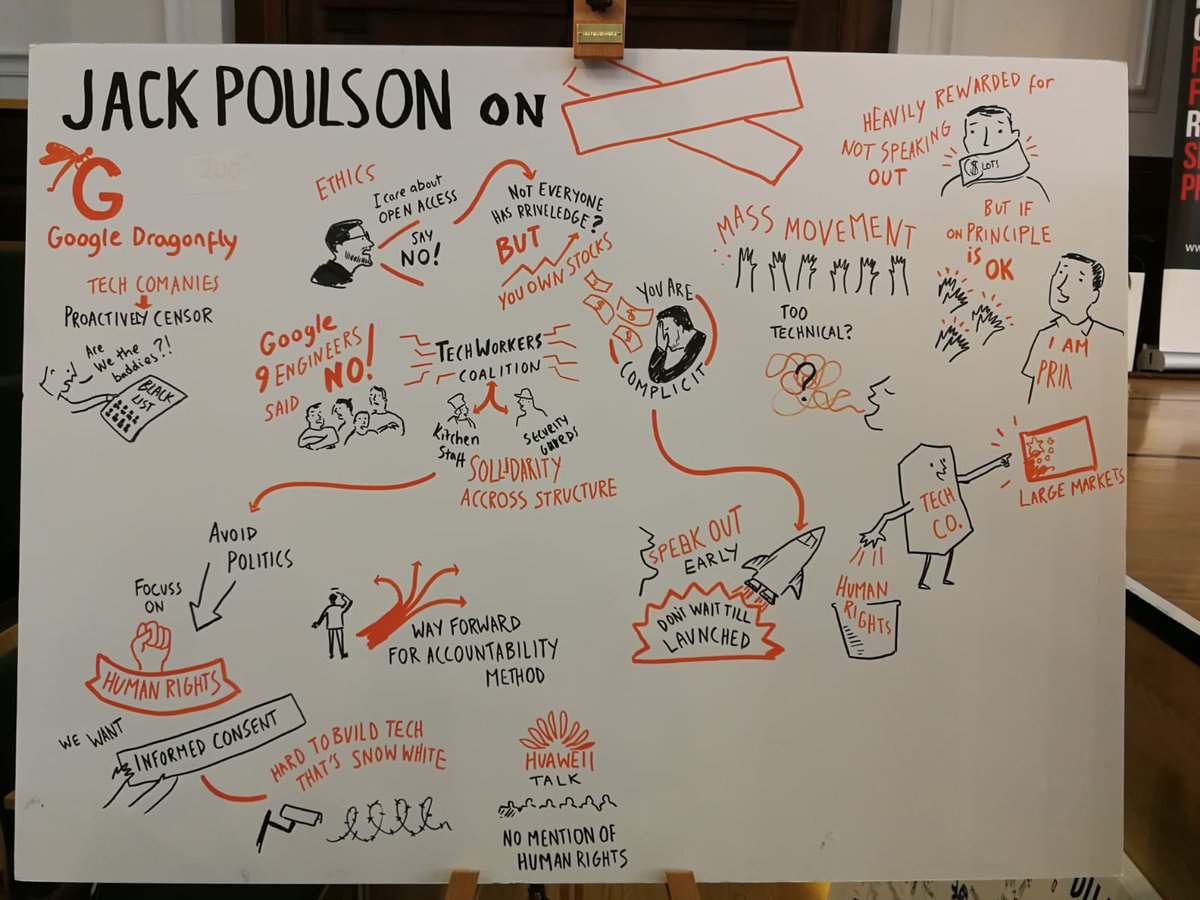 JACK POULSON ON
G
Google Dragonfly
200
TECH COMANIES
PROACTIVELY CENSOR
Are
we the
baddies?!
BLACK
LIST
ETHICS
I care about
OPEN ACCESS
SAY
NO!
NOT EVERYONE
HAS PRIVELEDGE?
BUT
YOU OWN STOCKS
Google
9 ENGINEERS
SAID NO!
TECH WORKERS
COALITION
Kitchen
Staff
SECURITY
GUARDS
SOLLIDARITY
ACCROSS STRUCTURE
$
$
$
YOU ARE
COMPLICIT
HEAVILY REWARDED for
NOT SPEAKING
OUT
$ LOTS
MASS MOVEMENT
BUT IF
ON PRINCIPLE
is OK
I AM
PRIN
TOO
TECHNICAL?
?
TECH
CO.
LARGE MARKETS
HUMAN
RIGHTS
AVOID
POLITICS
FOCUSS
ON
HUMAN RIGHTS
WE WANT
INFORMED CONSENT
HARD TO BUILD TECH
THAT'S SNOW WHITE
WAY FORWARD
FOR ACCOUNTABILITY
METHOD
SPEAK OUT
EARLY
DON'T WAIT TILL
LAUNCHED
HUAWEII
TALK
NO MENTION OF
HUMAN RIGHTS